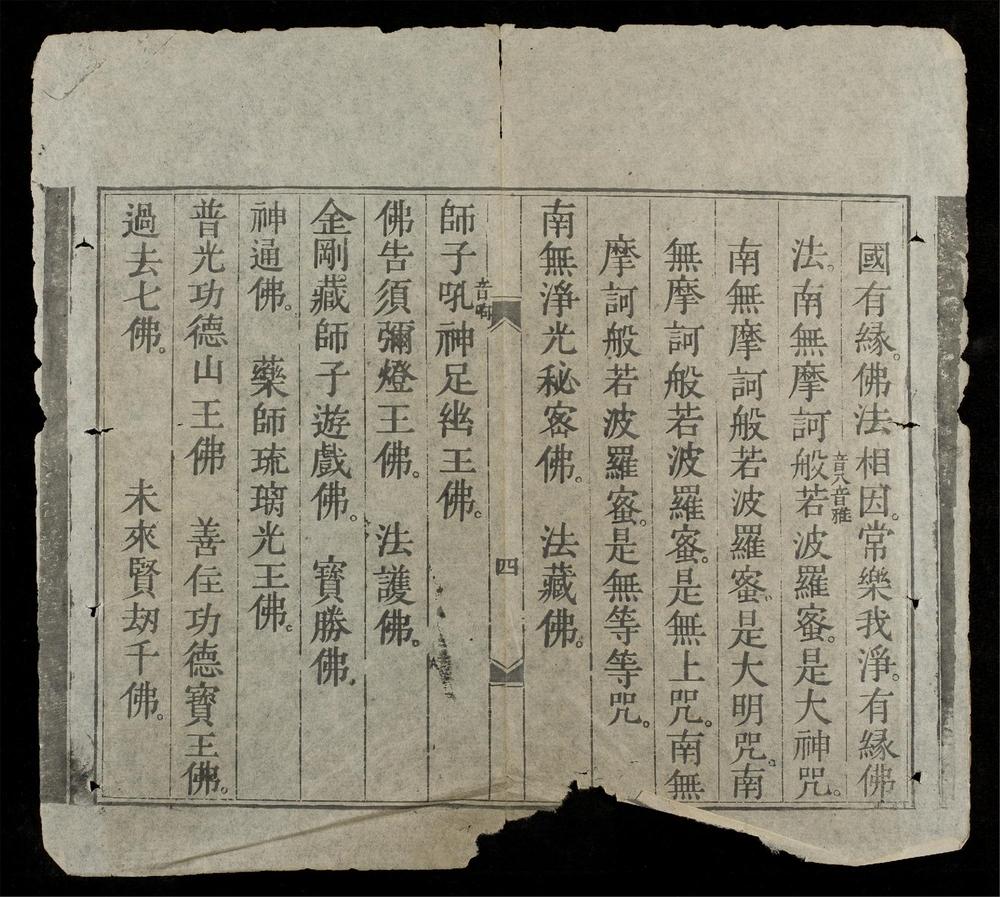 國有緣。佛法相因。常樂我淨。有緣佛
法。南無摩訶般若波羅蜜。是大神咒。
音八音雅
南無摩訶般若波羅蜜。是大明咒。南
無摩訶般若波羅蜜。是無上咒。南無
摩訶般若波羅蜜。是無等等咒。
南無淨光秘密佛。 法藏佛。
四
師子吼神足幽王佛。
佛告須彌燈王佛。 法護佛。
金剛藏師子遊戲佛。 寶勝佛。
神通佛。 藥師琉璃光王佛。
普光功德山王佛 善住功德寶王佛。
過去七佛。 未來賢劫千佛。